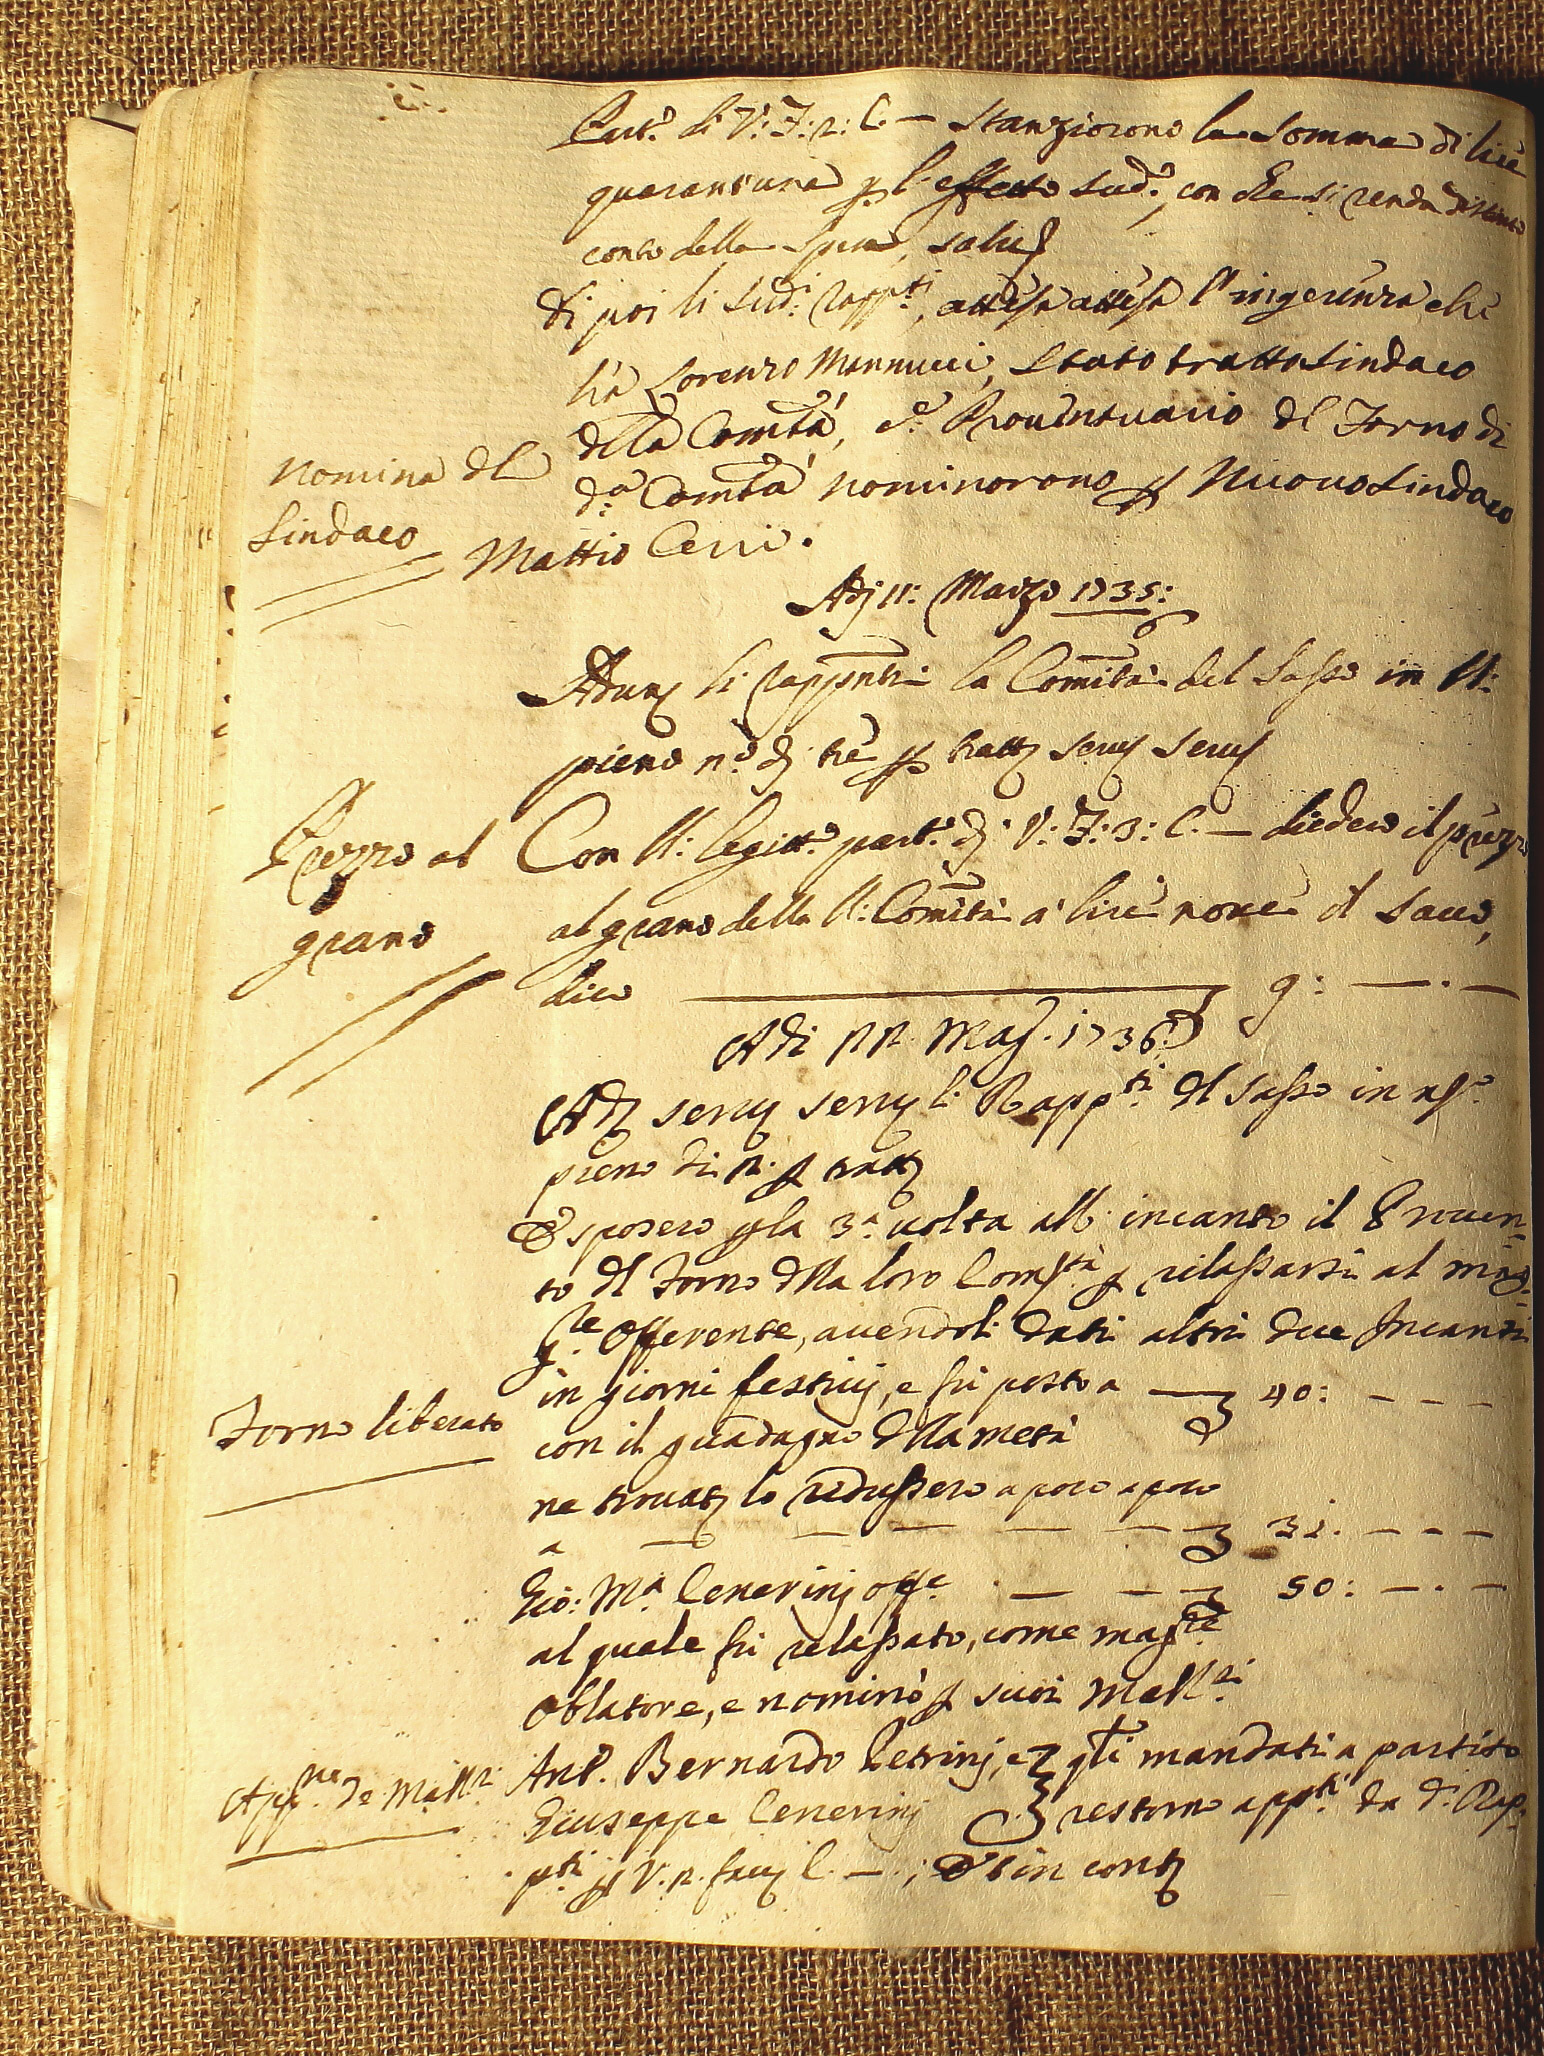 Part.º di V: F: 2: C. — stanziorono la somma di lire
quarantuna p l'effetto sud.º, con che si renda distinto
conto della spesa, salus
Di poi li sud.i Rapp.ti, attesa attesa l'ingerenza che
hà Lorenzo Mannucci, stato tratto Sindaco
dlla Comtà, e Proventuario dl Forno di
d.a Comtà nominorono p nuovo Sindaco
Mattio Cerri.
Nomina dl
Sindaco
Adj 11: Marzo 1735:
6
Adun li rappnti la Comità del Sasso in
pieno n.º di trè p tratt serv serv
Prezzo al
grano
Con legitt.º part.º di V: F: 3: C. — diedero il prezzo
al grano della Comità à lire nove il sacco,
dico — 9: — . —
Adi 22 Mag. 1736
Ad serv serv li Rapp.ti dl Sasso in
pieno di n. 2 p tratt
Esposero p la 3.a volta all' incanto il Proven-
to dl Forno dlla loro Com.tà p rilassarsi al mag-
g.re offerente, avendoli dati altri due Incanti
in giorni festivj, e fù posto a — 40: - - -
con il guadagno dlla metà
Forno liberato
ne trovat lo redussero a poco a poco
a — — — — — 31. - - -
Gio: M.a Cenerinj off.e — — 50: — . —
al quale fù relassato, come mag.re
oblatore, e nominò p suoi Mall.ri
App.ne de Mall.ri
Ant.º Bernardo Petrinj, e q.li mandati a partito
Giuseppe Cenerinj restorno app.ti da d.i Rap-
p.ti p V. 2. fav C. — .; et in cont